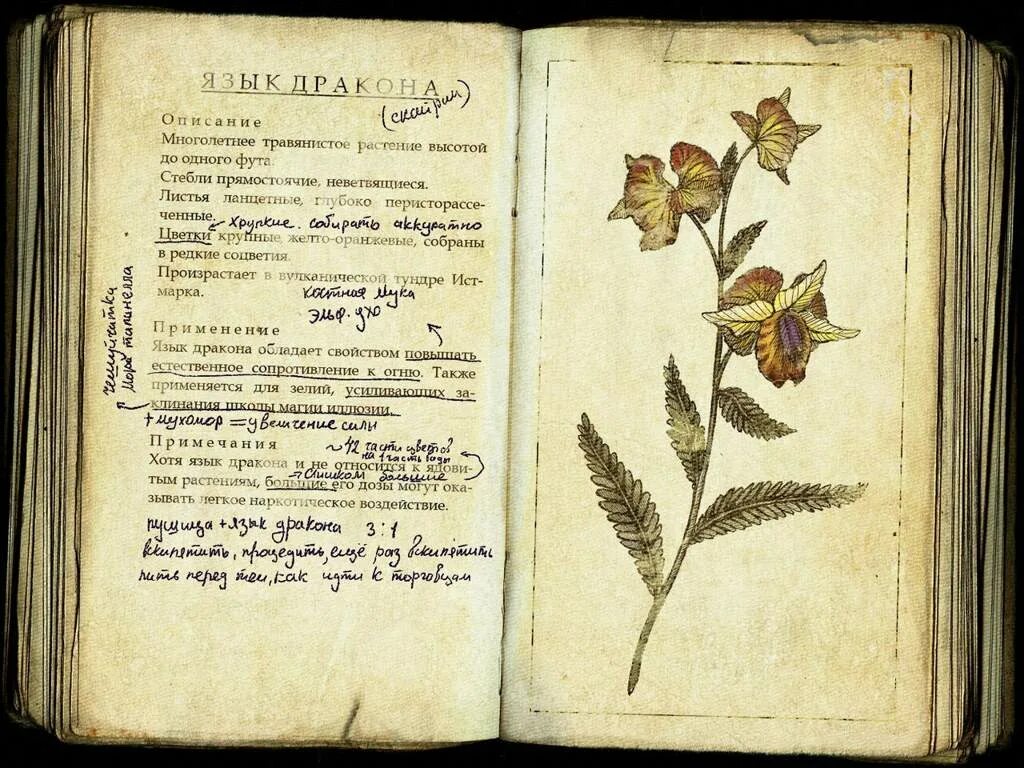 ЯЗЫК ДРАКОНА
(скайрим)
Описание
Многолетнее травянистое растение высотой
до одного фута.
Стебли прямостоячие, неветвящиеся.
Листья ланцетные, глубоко перисторассе-
ченные.
хрупкие. собирать аккуратно
Цветки крупные, желто-оранжевые, собраны
в редкие соцветия.
Произрастает в вулканической тундре Ист-
марка.
костная мука
эльф. ухо
Применение
Язык дракона обладает свойством повышать
естественное сопротивление к огню. Также
применяется для зелий, усиливающих за-
клинания школы магии иллюзии.
чешуйчатка
Мора тапинелла
+ мухомор = увеличение силы
Примечания
~ 12 части цветов
на 1 часть воды
Хотя язык дракона и не относится к ядови-
→ слишком большие
тым растениям, большие его дозы могут ока-
зывать легкое наркотическое воздействие.
пушица + язык дракона 3:1
вскипятить, процедить, ещё раз вскипятить
пить перед тем, как идти к торговцам